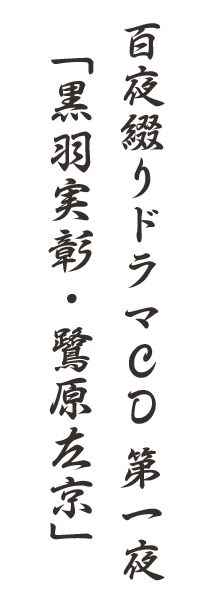 百夜綴りドラマCD 第一夜
「黒羽実彰・鷺原左京」